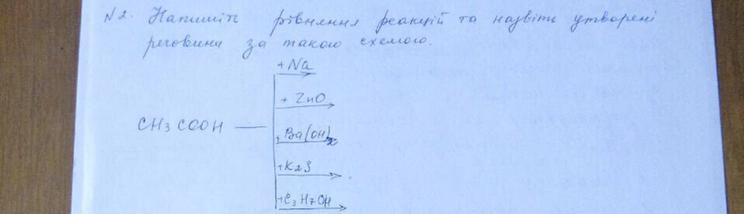 №2. Напишіть рівняння реакцій та назвіть утворені
речовини за такою схемою.
+Na
+ ZnO
CH3COOH
+Ba(OH)2
+K2S
+C3H7OH